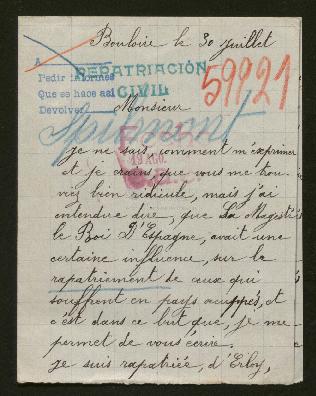 Bouloire le 30 juillet
REPATRIACIÓN
CIVIL
A
Pedir informes
Que se hace así
Devolver
59921
Monsieur
19 AGO.
Je ne sais, comment m'exprimer
et je crains, que vous me trou-
viez bien ridicule, mais j'ai
entendue dire, que Sa Magesté
le Roi D'Espagne, avait une
certaine influence, sur le
rapatriement de ceux qui
souffrent en pays occuppés, et
c'est dans ce but que, je me
permet de vous écrire.
Je suis rapatriée, d'Erloy,